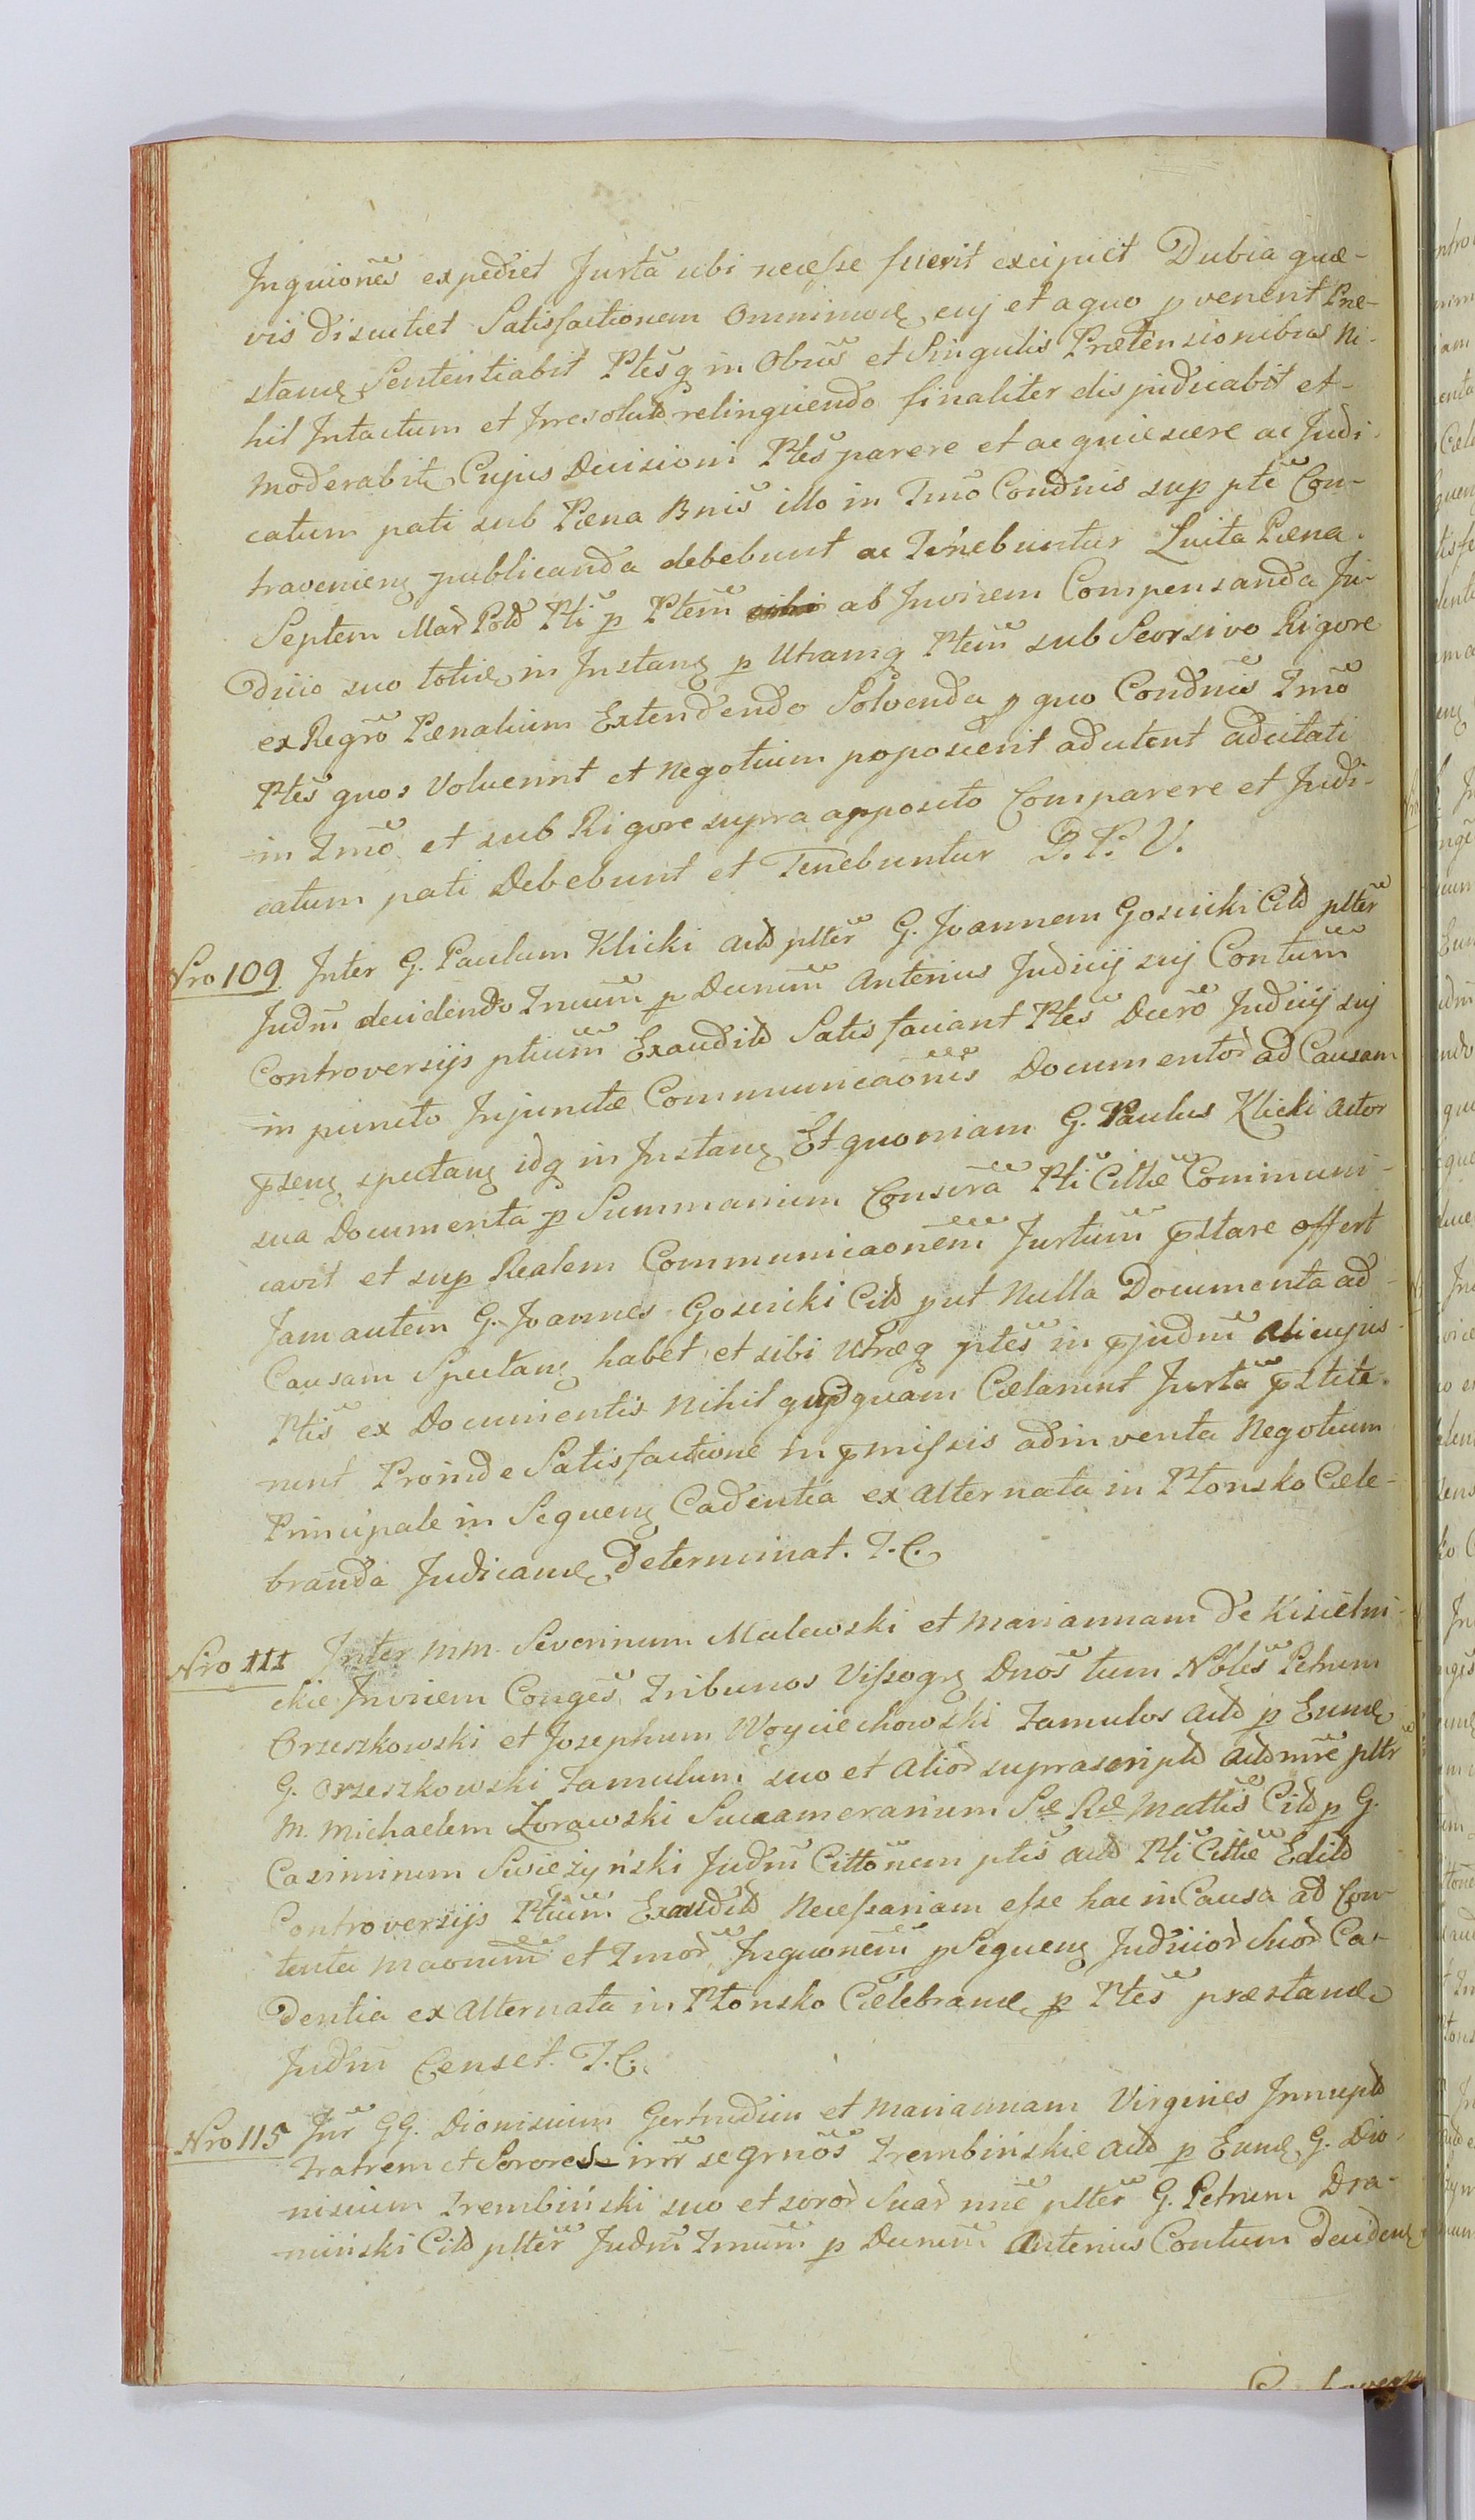 Inquiones expediet Jurta ubi necesse fuerit excipiet Dubia quæ-
vis discutiet Satisfactionem Omnimod, cuj et a quo pvenerit Præ-
stand, Sententiabit Ptes q in Obus et Singulis Prætensionibus Ni-
hil Intactum et Irresolutd relinquendo finaliter disjudicabit et
moderabit, Cujus Decisioni Ptes parere et acquiescere ac Judi-
catum pati sub Pæna Bnis illo in Tmo Condnis sup pte Con-
travenien publicanda debebunt ac Tenebuntur Luita Pæna
Septem Mar Pold Pti p Ptem ab Invicem Compensanda Ju-
dicio suo totie, in Instan p Utramq Ptem sub Seorsivo Rigore
ex Regro Pænalium Extendendo Solvenda p quo Condnis Tmo
Ptes quos Voluerint et Negotium poposcerit adcitent adcitati
in Tmo et sub Rigore supra apposito Comparere et Judi-
catum pati Debebunt et Tenebuntur D. P. V.
Nro 109 Inter G. Paulum Klicki actd plter G. Joannem Gosciski Citd plter
Judm decidendo Tmum p Decum Anterius Judicij suj Contum
Controversijs ptium Exauditd Satisfaciant Ptes Decro Judicij suj
in puncto Injunctæ Communicaonis Documentor ad Causam
psen spectan idq in Instan Et quoniam G. Paulus Klicki Actor
sua Documenta p Summarium Conscra Pti Cittæ Communi-
cavit et sup Realem Communicaonem Jurtum pstare offert
Jam autem G. Joannes Gosciski Citd put Nulla Documenta ad
Causam Spectan habet et sibi Utræq ptes in pjudm Alicujus
Ptis ex Documentis Nihil quidquam Cælarunt Jurta pstite-
runt Proinde Satisfactione in pmissis adinventa Negotium
Principale in Sequen Cadentia ex Alternata in Płonsko Cele-
branda Judicand, Determinat. T. C.
Nro 111 Inter MM. Severinum Malewski et Mariannam de Kisielni-
ckie Invicem Conges Tribunos Vissogr Dnos tum Nobles Petrum
Orzeszkowski et Josephum Woyciechowski Famulos Actd p Eund
G. Orzeszkowski Famulum suo et Alior suprascriptd Actd nne pltr
M. Michaelem Zorawski Succamerarium Sæ Ræ Mattis Citd p G.
Casimirum Swiezyński Judm Cittonem ptis Actd Pti Cittæ Editd
Controversijs Ptium Exauditd Necessariam esse hac in Causa ad Con-
tenta Maonum et Tmor Inquonem p Sequen Judicior Suor Ca-
dentia ex Alternata in Płonsko Cælebrand, p Ptes præstand,
Judm Censet. T. C.
Nro 115 Intr GG. Dionisium Gertrudim et Mariannam Virgines Innuptd
Fratrem et Sorores intr se grnos Trembińskie Actd p Eund, G. Dio-
nisium Trembiński suo et soror Suar nne plter G. Petrum Dra-
mińki Citd plter Judm Tmum p Decum Anterius Contum Deciden